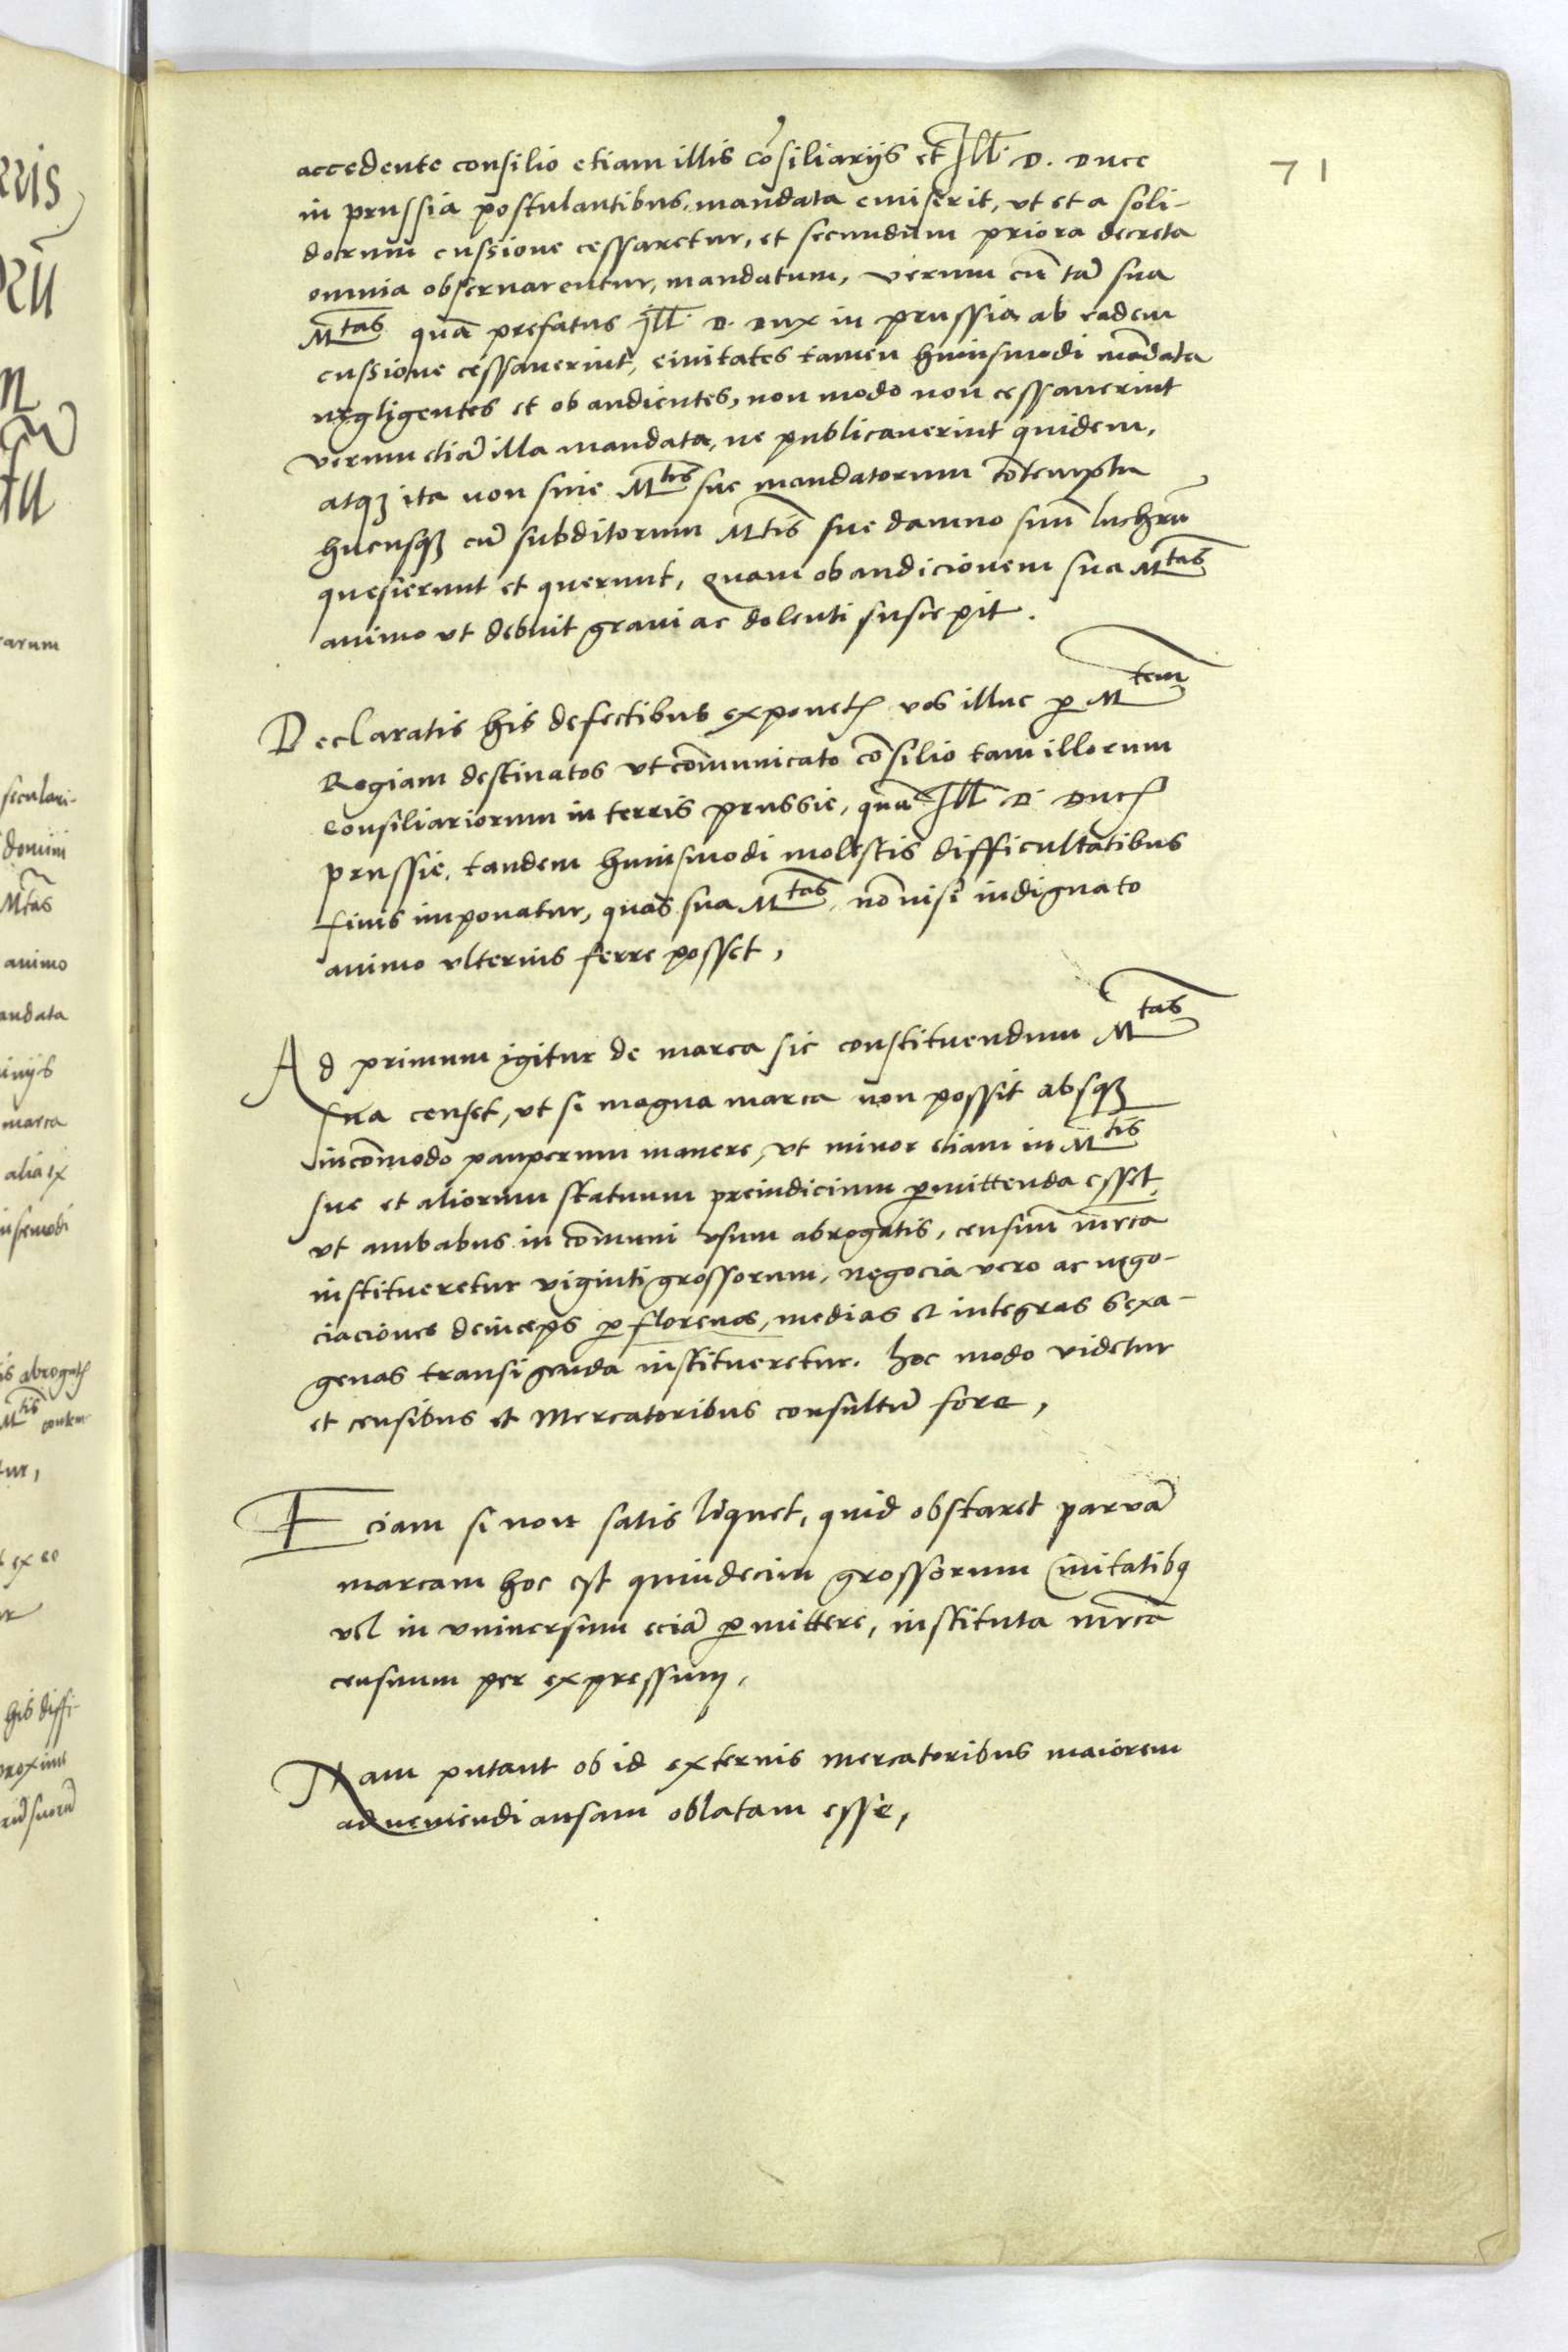 71
accedente consilio etiam illis cōsiliarijs et Ill. D. Duce
in prussia postulantibus, mandata emiserit, vt et a soli-
dorum cussione cessaretur, et secundum priora decreta
omnia obseruarentur, mandatum, verum cū tā sua
Mtas quā prefatus Ill. D. Dux in prussia ab eadem
cussione cessauerint, ciuitates tamen huiusmodi mādata
negligentes et obaudientes, non modo non cessauerint
verum etiā illa mandata, ne publicauerint quidem,
atqꝫ ita non sine Mtis sue mandatorum cōtemptu
hucusqꝫ cū subditorum Mtis sue damno suū luchrū
quesierunt et querunt, Quam obaudicionem sua Mtas
animo vt debuit graui ac dolenti suscepit.
Declaratis his defectibus exponetꝭ vos illuc ꝑ Mtem
Regiam destinatos vt cōmunicato cōsilio tam illorum
Consiliariorum in terris prussie, quā Ill D. Ducꝭ
prussie, tandem huiusmodi molestis difficultatibus
finis imponatur, quas sua Mtas, nō nisi indignato
animo vlterius ferre posset,
Ad primum igitur de marca sic constituendum Mtas
sua censet, vt si magna marca non possit absqꝫ
incōmodo pauperum manere, vt minor etiam in Mtis
sue et aliorum statuum preiudicium ꝑmittenda esset,
vt ambabus in cōmuni vsum abrogatis, censuū mrca
institueretur viginti grossorum, negocia vero ac nego-
ciaciones deinceps ꝑ florenos, medias et integras sexa-
genas transigenda institueretur. hoc modo videtur
et censibus et Mercatoribus consultū fore,
Eciam si non satis liquet, quid obstaret parvā
marcam hoc est quindecim grossorum Ciuitatibꝫ
vel in vniuersum eciā ꝑmittere, instituta mrca
censuum per expressum,
Nam putant ob id externis mercatoribus maiorem
adueniendi ansam oblatam esse,